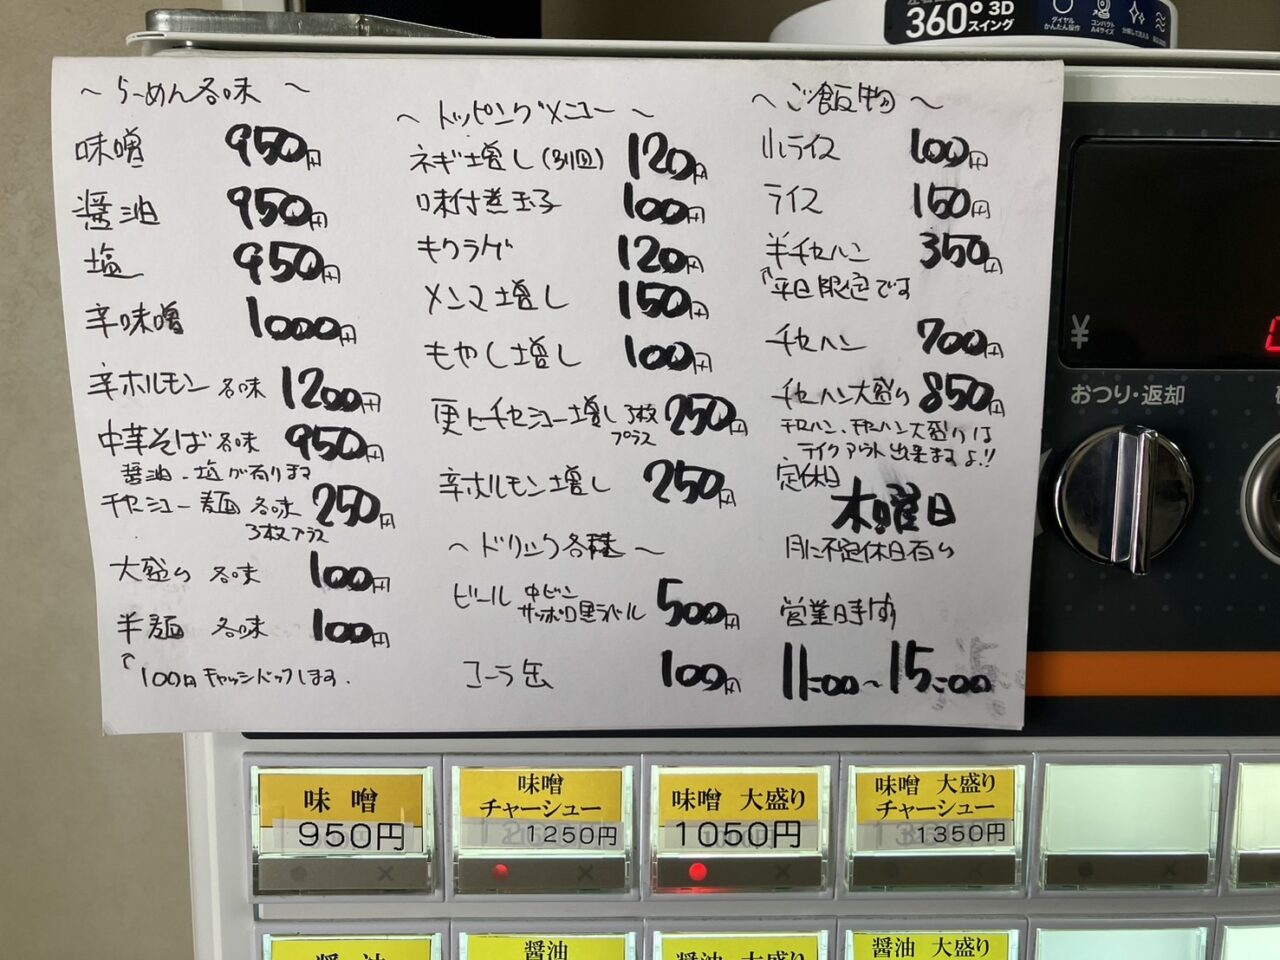 360° 3Dスイング
ダイヤルかんたん操作
コンパクトA4サイズ
～らーめん各味～
味噌 950円
醤油 950円
塩 950円
辛味噌 1000円
辛ホルモン 各味 1200円
中華そば 各味 950円
醤油・塩が有ります
チャーシュー麺 各味 250円
3枚プラス
大盛り 各味 100円
半麺 各味 100円
↑100円キャッシュバックします.
～トッピングメニュー～
ネギ増し(別皿) 120円
味付煮玉子 100円
キクラゲ 120円
メンマ増し 150円
もやし増し 100円
更にチャーシュー増し 3枚プラス 250円
辛ホルモン増し 250円
～ドリンク各種～
ビール 中ビン サッポロ黒ラベル 500円
コーラ缶 100円
～ご飯物～
小ライス 100円
ライス 150円
半チャーハン 350円
↑平日限定です
チャーハン 700円
チャーハン大盛り 850円
チャーハン、チャーハン大盛りは
テイクアウト出来ますよ!!
定休日
木曜日
月に不定休日有り
営業時間
11:00～15:00
¥
おつり・返却
味噌 950円
味噌 チャーシュー 1250円
味噌 大盛り 1050円
味噌 大盛り チャーシュー 1350円
醤油
醤油
醤油 大盛り
醤油 大盛り